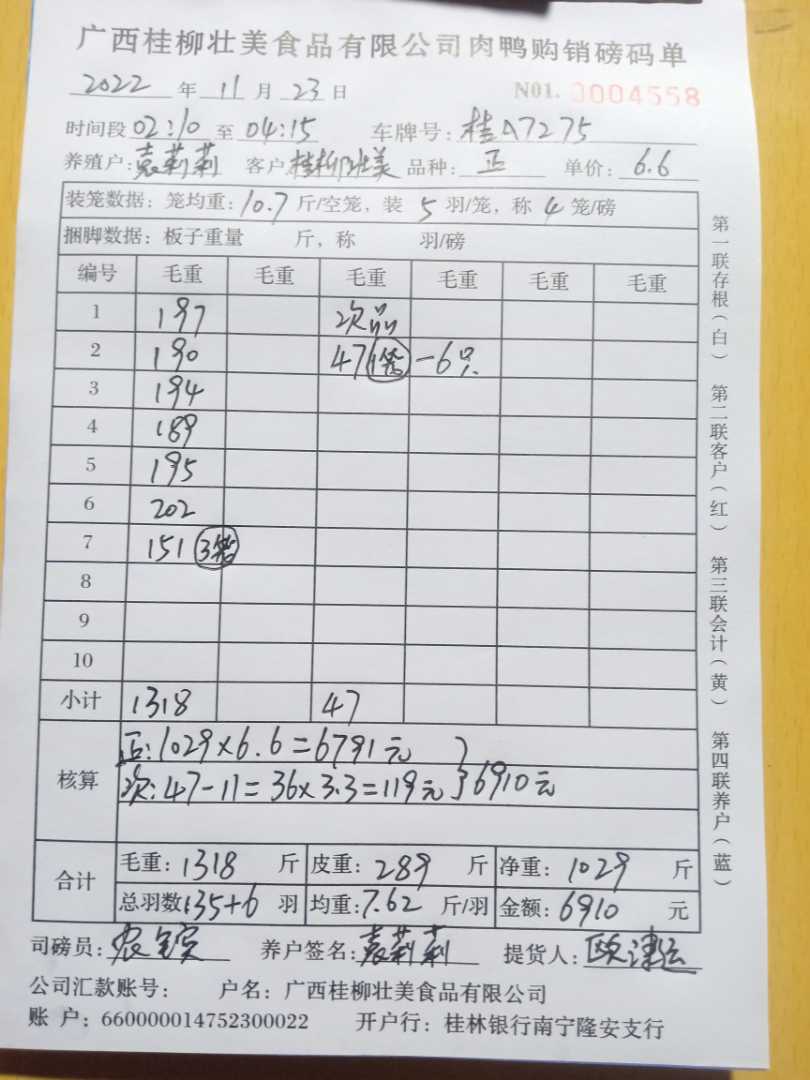 广西桂柳壮美食品有限公司肉鸭购销磅码单
2022 年 11 月 23 日 N01. 0004558
时间段 02:10 至 04:15 车牌号: 桂A7275
养殖户: 袁莉莉 客户 桂柳壮美 品种: 正 单价: 6.6
装笼数据: 笼均重: 10.7 斤/空笼, 装 5 羽/笼, 称 4 笼/磅
捆脚数据: 板子重量 斤, 称 羽/磅
编号 毛重 毛重 毛重 毛重 毛重 毛重
1 197 次品
2 190 47 1笼 -6只
3 194
4 189
5 195
6 202
7 151 3笼
8
9
10
小计 1318 47
核算
正: 1029×6.6=6791元
次: 47-11=36×3.3=119元 }6910元
合计
毛重: 1318 斤 皮重: 289 斤 净重: 1029 斤
总羽数: 135+6 羽 均重: 7.62 斤/羽 金额: 6910 元
司磅员: 养户签名: 袁莉莉 提货人: 欧津运
公司汇款账号: 户名: 广西桂柳壮美食品有限公司
账 户: 660000014752300022 开户行: 桂林银行南宁隆安支行
第一联存根(白) 第二联客户(红) 第三联会计(黄) 第四联养户(蓝)